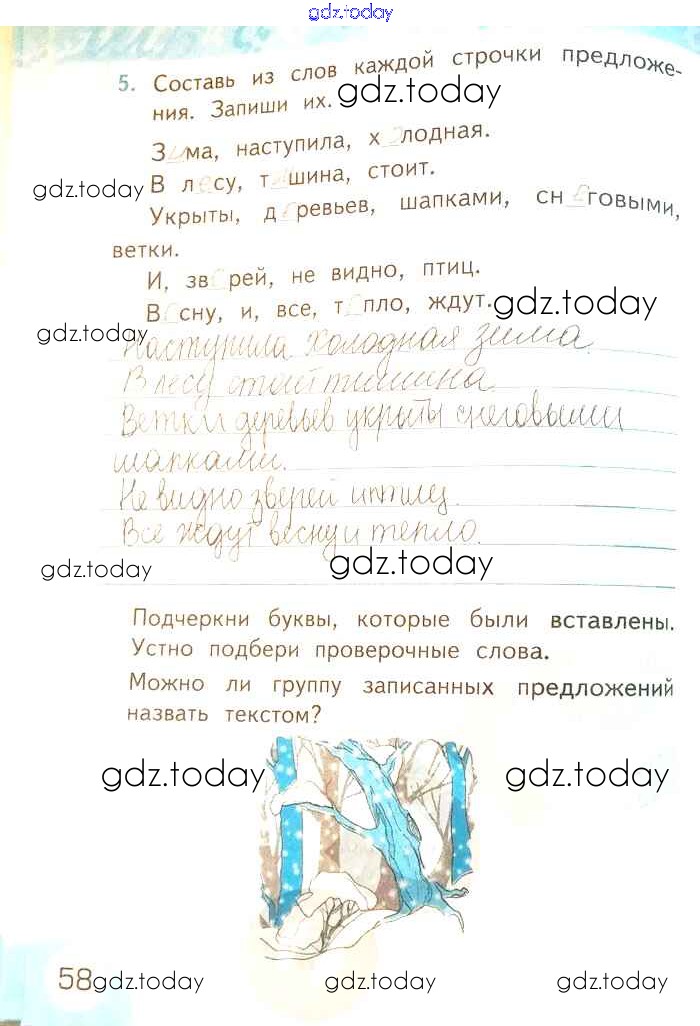 gdz.today
5. Составь из слов каждой строчки предложе-
ния. Запиши их. gdz.today
Зима, наступила, холодная.
gdz.today В лесу, тишина, стоит.
Укрыты, деревьев, шапками, снеговыми,
ветки.
И, зверей, не видно, птиц.
Весну, и, все, тепло, ждут. gdz.today
gdz.today
Наступила холодная зима.
В лесу стоит тишина.
Ветки деревьев укрыты снеговыми
шапками.
Не видно зверей и птиц.
Все ждут весну и тепло.
gdz.today gdz.today
Подчеркни буквы, которые были вставлены.
Устно подбери проверочные слова.
Можно ли группу записанных предложений
назвать текстом?
gdz.today gdz.today
58 gdz.today gdz.today gdz.today